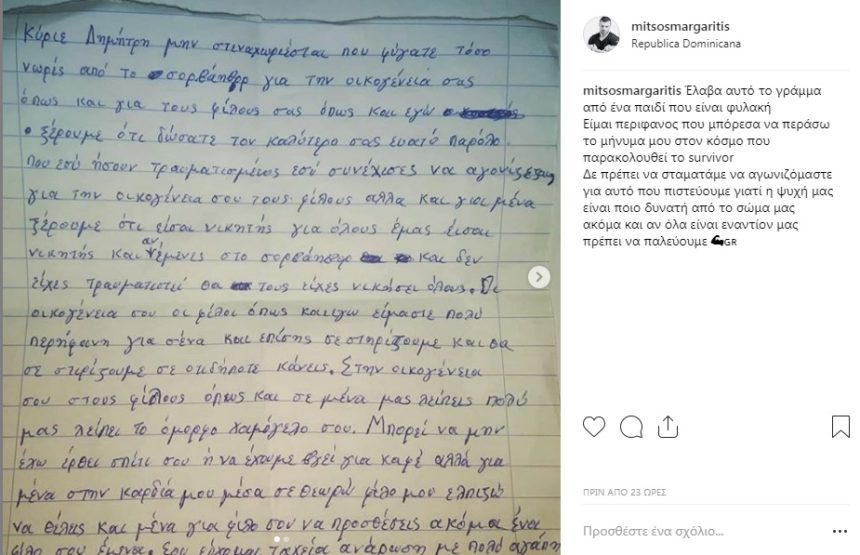 Κύριε Δημήτρη μην στεναχωριέσται που φύγατε τόσο
νωρίς από το σορβάηβορ για την οικογένεια σας
όπως και για τους φίλους σας όπως και εγώ
ξέρουμε ότι δώσατε τον καλύτερο σας ευατό παρόλο
που εσύ ήσουν τραυματισμένος εσύ συνέχισες να αγωνίζεσαι
για την οικογένεια σου τους φίλους αλλα και για μένα
ξέρουμε ότι είσαι νικητής για όλους έμας είσαι
νικητής και αν έμενες στο σορβάηβορ και δεν
είχες τραυματιστεί θα τους είχες νικήσει όλους. Οι
οικογένεια σου οι φίλοι όπως και εγω είμαστε πολύ
περηφανη για σένα και επίσης σε στηρίζουμε και θα
σε στιρίξουμε σε οτιδήποτε κάνεις. Στην οικογένεια
σου στους φίλους όπως και σε μένα μας λείπεις πολύ
μας λείπει το όμορφο χαμόγελο σου. Μπορεί να μην
έχω έρθει σπίτι σου ή να έχουμε βγεί για καφέ αλλά για
μένα στην καρδιά μου μέσα σε θεωρώ φίλο μου ελπίζω
να θέλεις και μένα για φίλο σου να προσθέσεις ακόμα ένα
φίλο σου έμενα. Σου εύχομαι ταχεία ανάρωση με πολύ αγάπη
mitsosmargaritis
Republica Dominicana
mitsosmargaritis Έλαβα αυτό το γράμμα
από ένα παιδί που είναι φυλακή
Είμαι περιφανος που μπόρεσα να περάσω
το μήνυμα μου στον κόσμο που
παρακολουθεί το survivor
Δε πρέπει να σταματάμε να αγωνιζόμαστε
για αυτό που πιστεύουμε γιατί η ψυχή μας
είναι ποιο δυνατή από το σώμα μας
ακόμα και αν όλα είναι εναντίον μας
πρέπει να παλεύουμε 💪GR
ΠΡΙΝ ΑΠΟ 23 ΩΡΕΣ
Προσθέστε ένα σχόλιο...